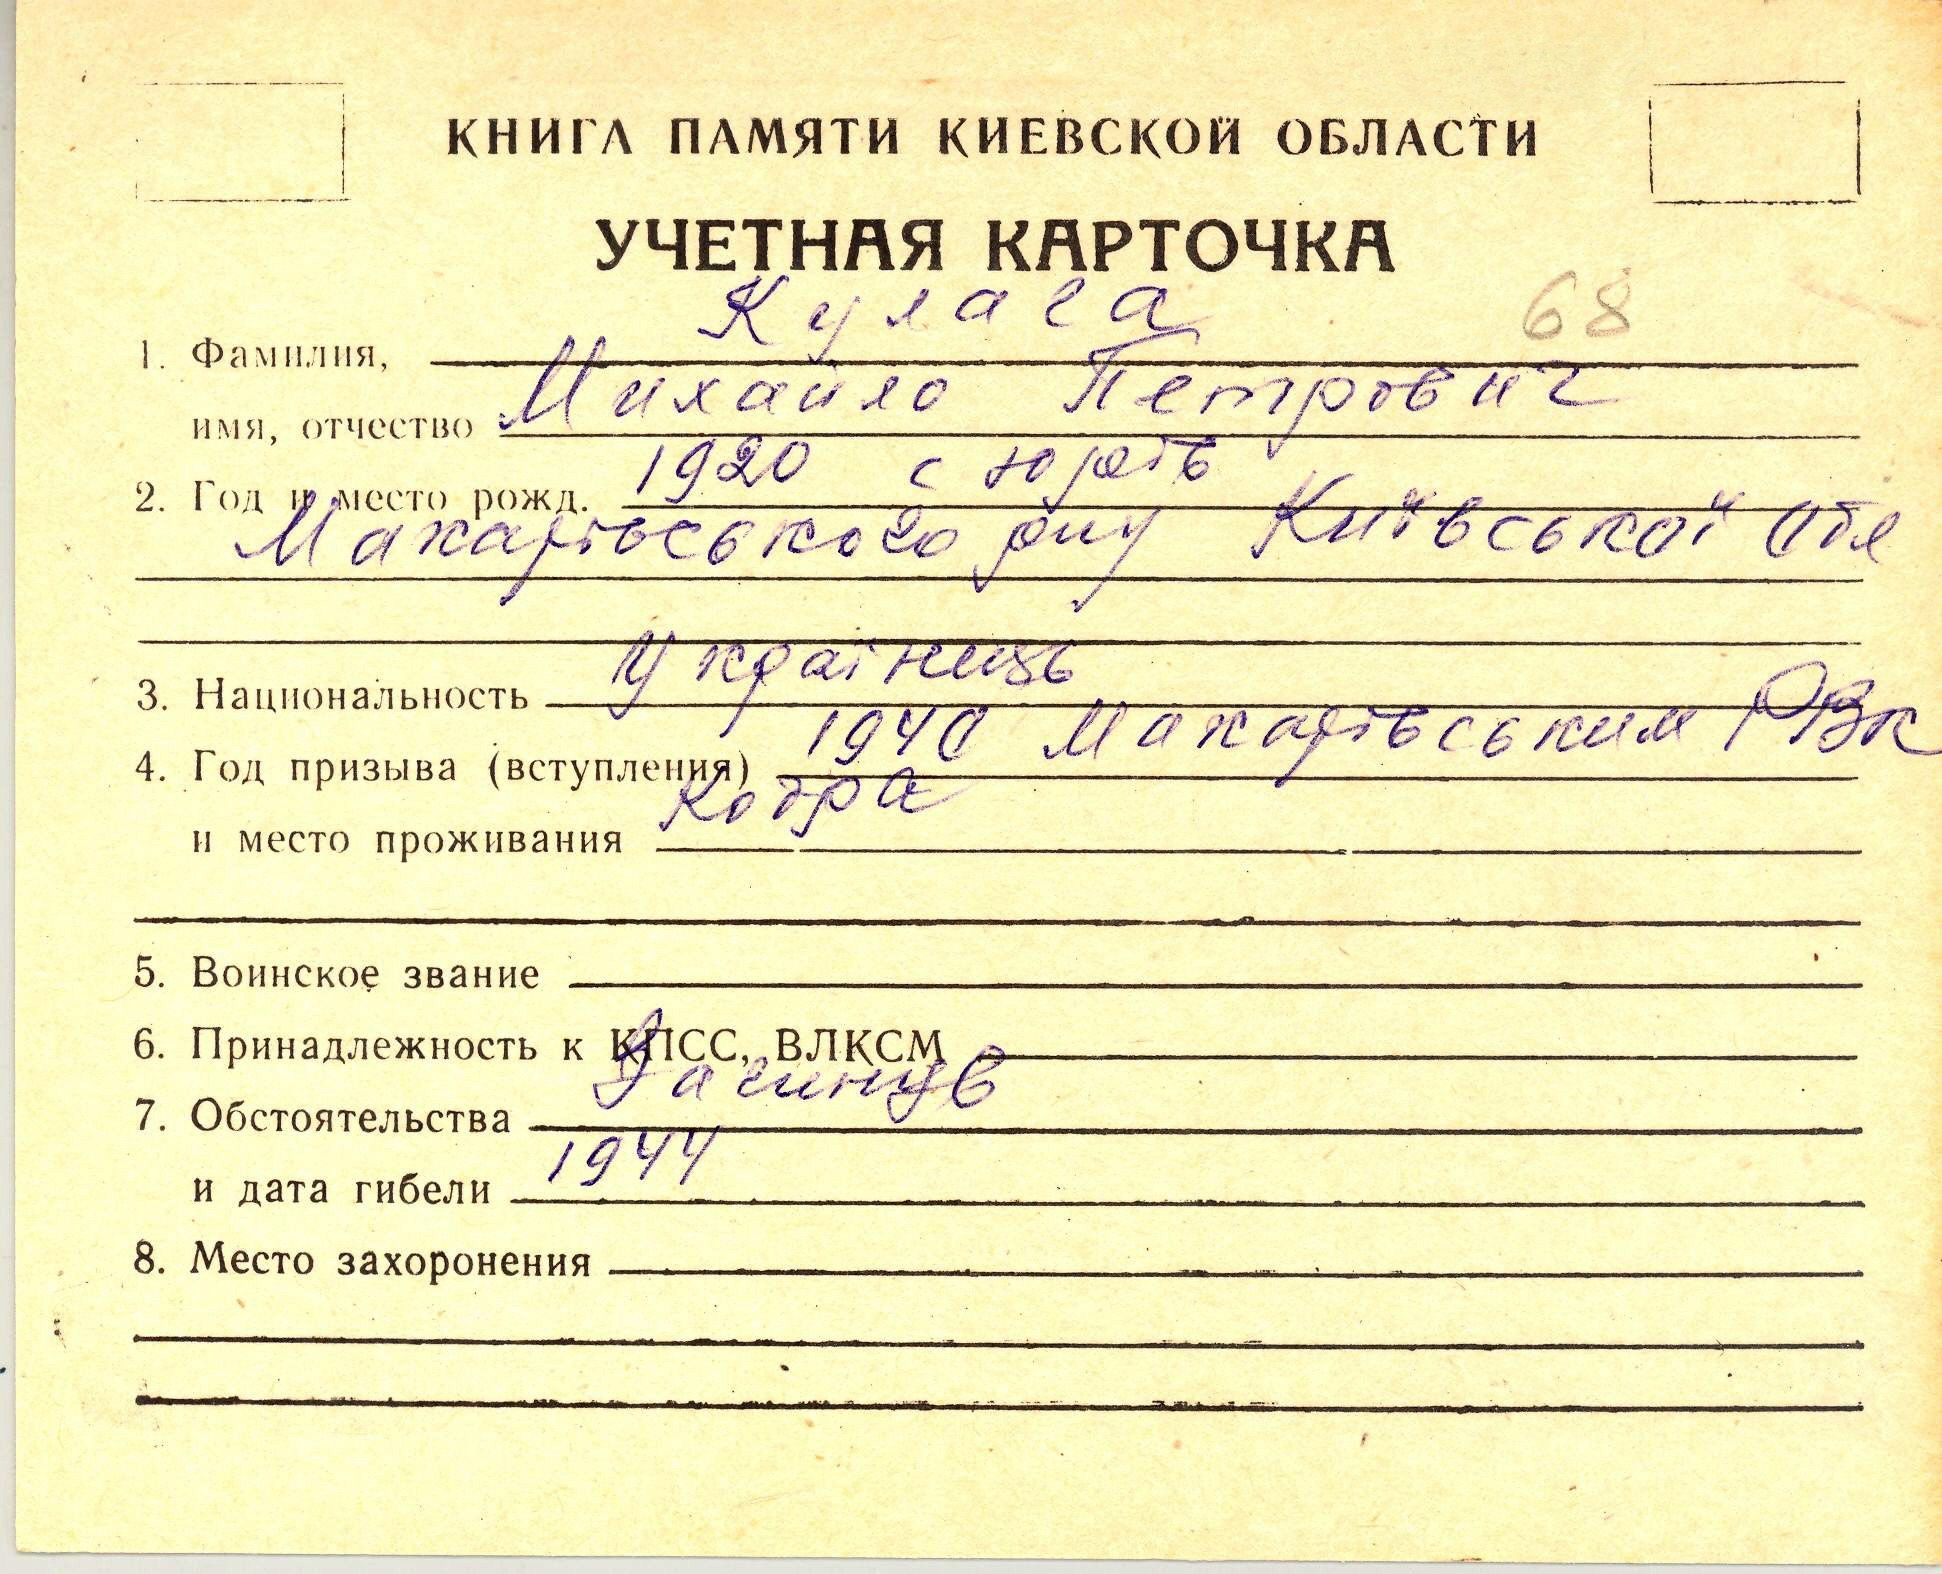 КНИГА ПАМЯТИ КИЕВСКОЙ ОБЛАСТИ
УЧЕТНАЯ КАРТОЧКА
68
1. Фамилия, Кулага
имя, отчество Михайло Петрович
2. Год и место рожд. 1920 с Юрів
Макарівського р-ну Київської Обл
3. Национальность Українець
4. Год призыва (вступления) 1940 Макарівським РВК
и место проживания
5. Воинское звание
6. Принадлежность к КПСС, ВЛКСМ
7. Обстоятельства Загинув
и дата гибели 1944
8. Место захоронения